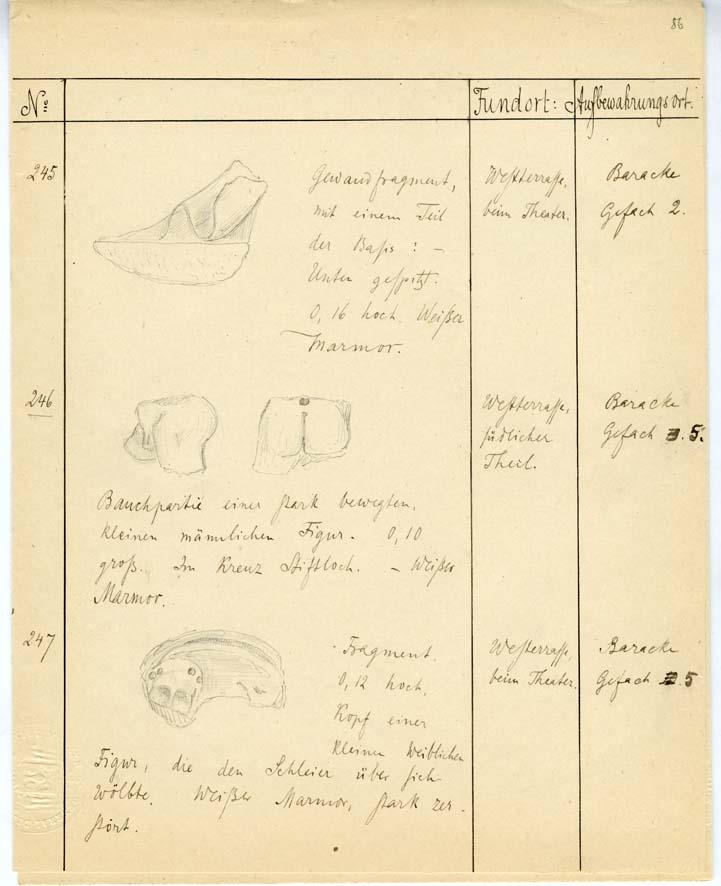 86
No
Fundort:
Aufbewahrungsort.
245
Gewandfragment,
mit einem Teil
der Basis: –
Unten gespitzt.
0,16 hoch. Weißer
Marmor.
Westterrasse,
beim Theater.
Baracke
Gefach 2.
246
Bauchpartie einer stark bewegten,
kleinen männlichen Figur. 0,10
groß. Im Kreuz Stiftloch. – Weißer
Marmor.
Westterrasse,
südlicher
Theil.
Baracke
Gefach 5.
247
Fragment.
0,12 hoch.
Kopf einer
kleinen Weiblichen
Figur, die den Schleier über sich
wölbte. Weißer Marmor, stark zer-
stört.
Westterrasse,
beim Theater.
Baracke
Gefach 5